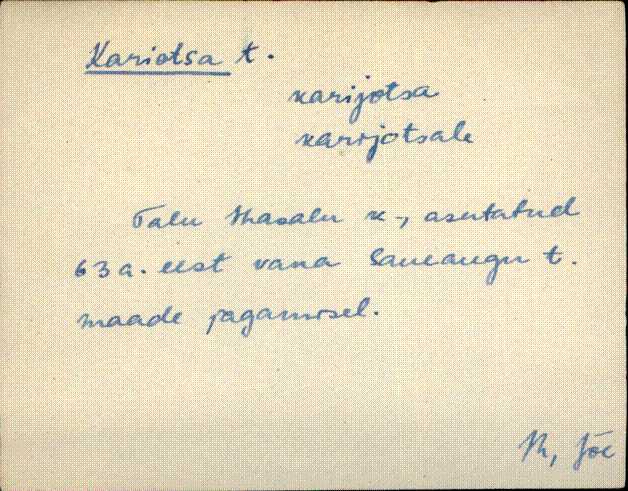 Kariotsa t.
karijotsa
karijotsale
Talu Ihasalu k-, asutatud
63 a. eest vana Saueaugu t.
maade jagamisel.
Jõe